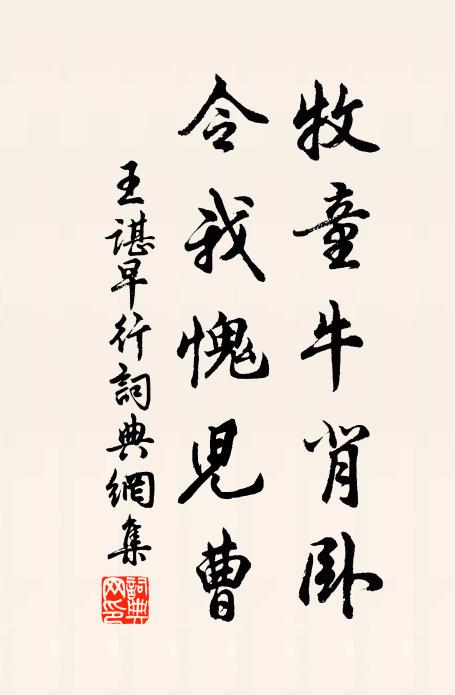 牧童牛背卧
令我愧兒曹
王諶早行詞典網集
詞典網印